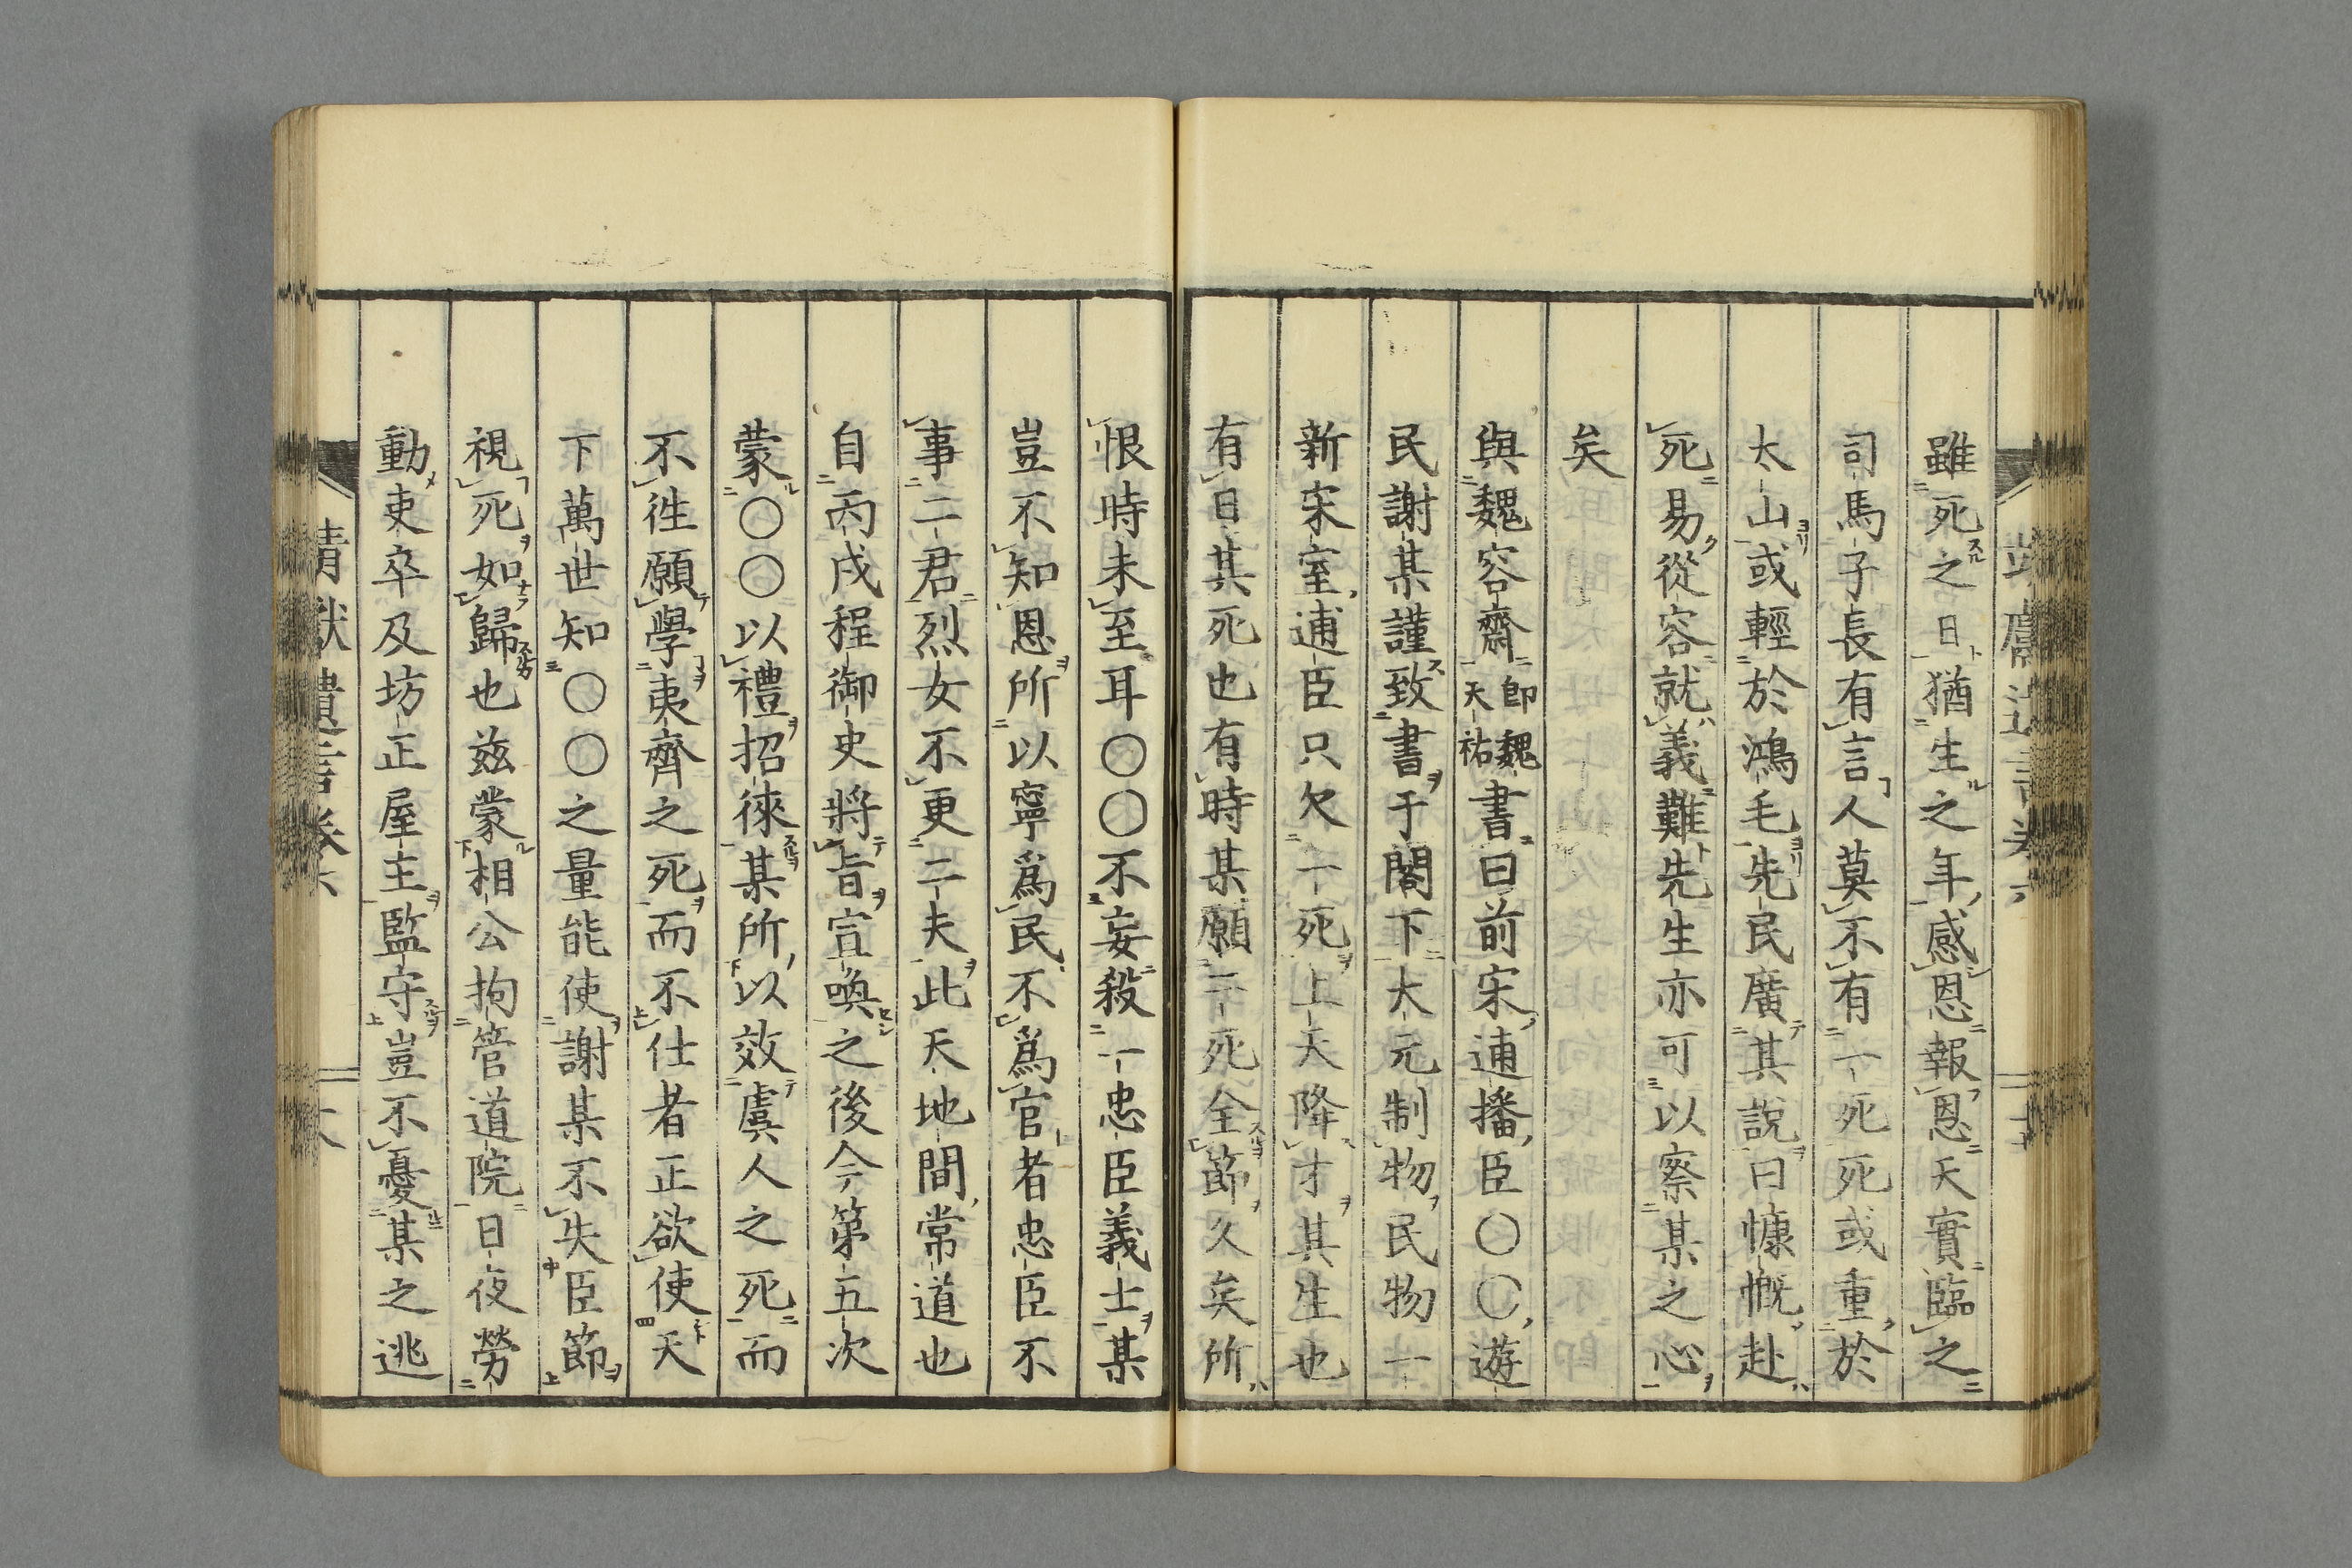 雖死之日猶生之年感恩報恩天實臨之
司馬子長有言人莫不有一死死或重於
太山或輕於鴻毛先民廣其說曰慷慨赴
死易從容就義難先生亦可以察某之心
矣
與魏容齋即魏天祐書曰前宋逋播臣〇〇遊
民謝某謹致書于閣下大元制物民物一
新宋室逋臣只欠一死上天降才其生也
有日其死也有時某願一死全節久矣所
恨時未至耳〇〇不妄殺一忠臣義士某
豈不知恩所以寧爲民不爲官者忠臣不
事二君烈女不更二夫此天地間常道也
自丙戌程御史將旨宣喚之後今第五次
蒙〇〇以禮招徠某所以效虞人之死而
不徃願學夷齊之死而不仕者正欲使天
下萬世知〇〇之量能使謝某不失臣節
視死如歸也玆蒙相公拘管道院日夜勞
動吏卒及坊正屋主監守豈不憂某之逃
靖獻遺言卷六